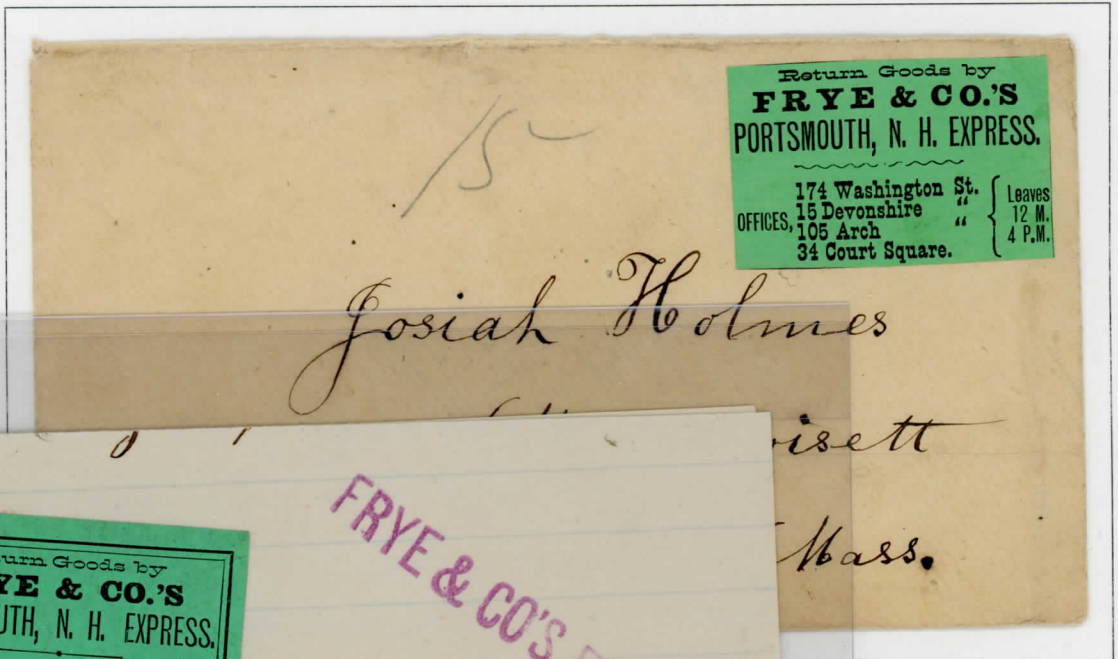 15
Return Goods by
FRYE & CO.'S
PORTSMOUTH, N. H. EXPRESS.
OFFICES, 174 Washington St. Leaves
15 Devonshire “ 12 M.
105 Arch “ 4 P.M.
34 Court Square.
Josiah Holmes
isett
Mass.
FRYE & CO'S
urn Goods by
YE & CO.'S
UTH, N. H. EXPRESS.